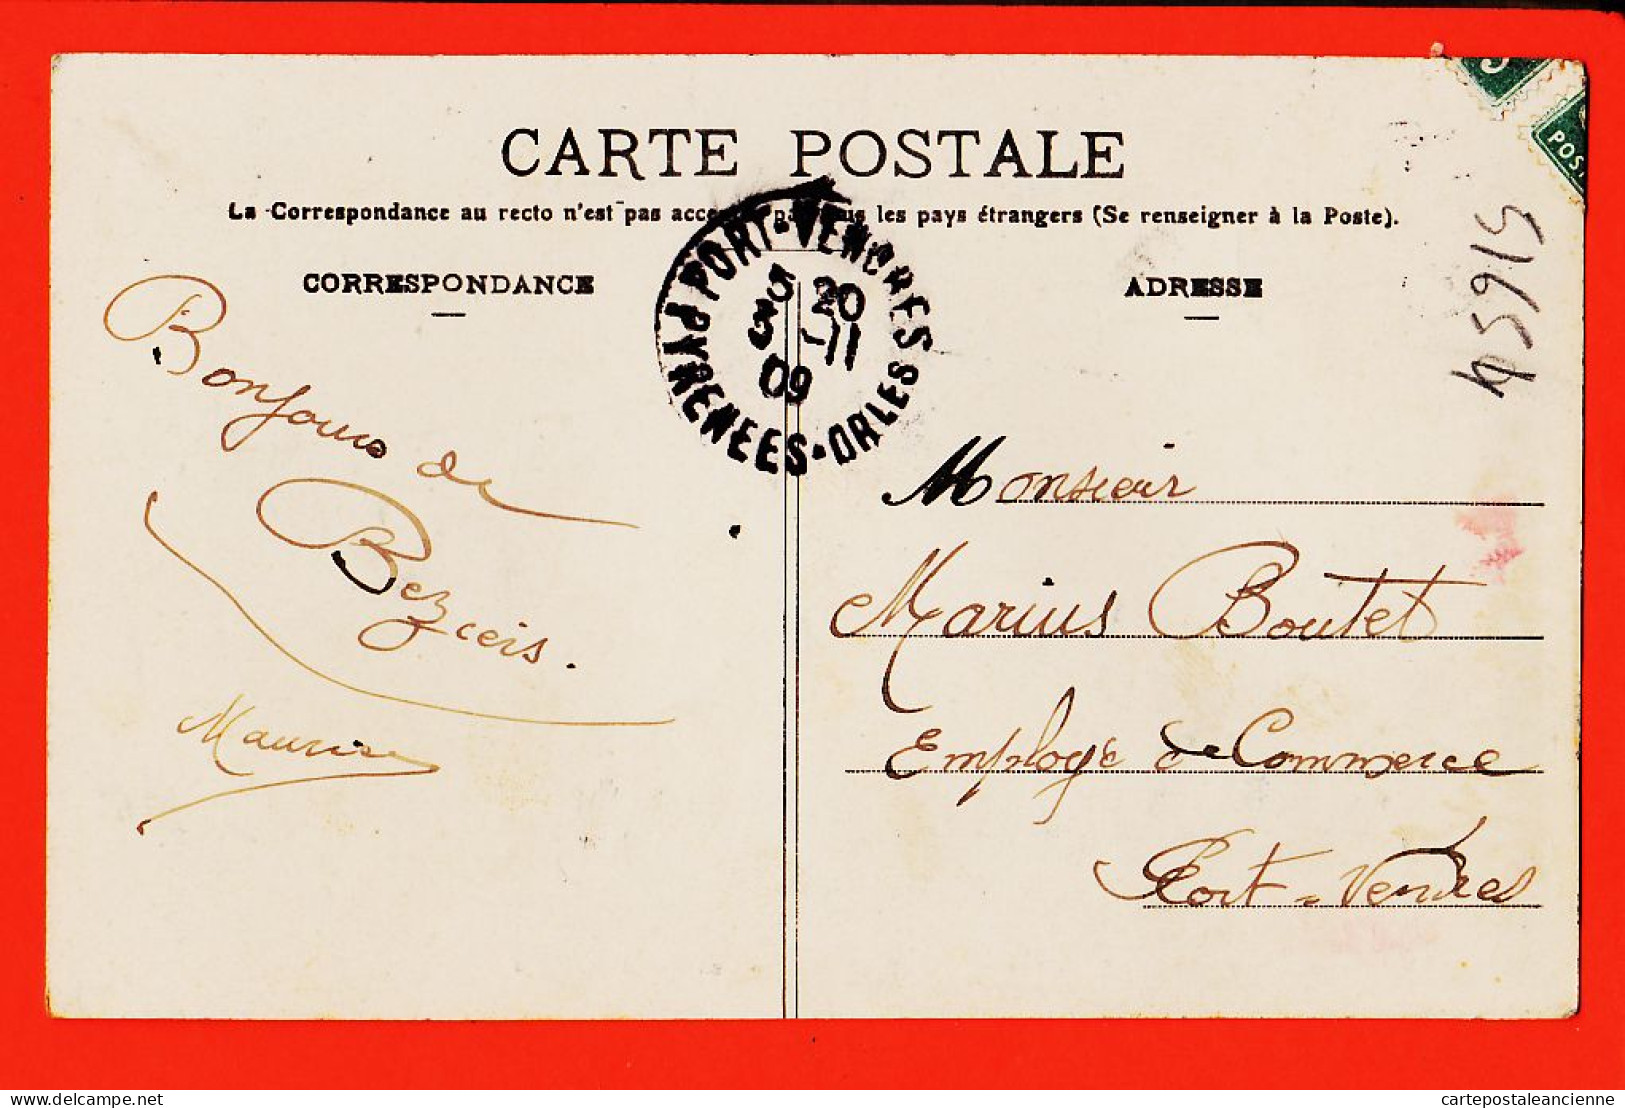 CARTE POSTALE
La Correspondance au recto n'est pas les pays étrangers (Se renseigner à la Poste).
CORRESPONDANCE
ADRESSE
PORT-VENDRES
PYRENEES-ORLES
20
3 -11
09
5
POST
45915
Bonjour de
Beziers.
Maurice
Monsieur
Marius Boutet
Employé de Commerce
Port-Vendres
delcampe.net
cartepostaleancienne